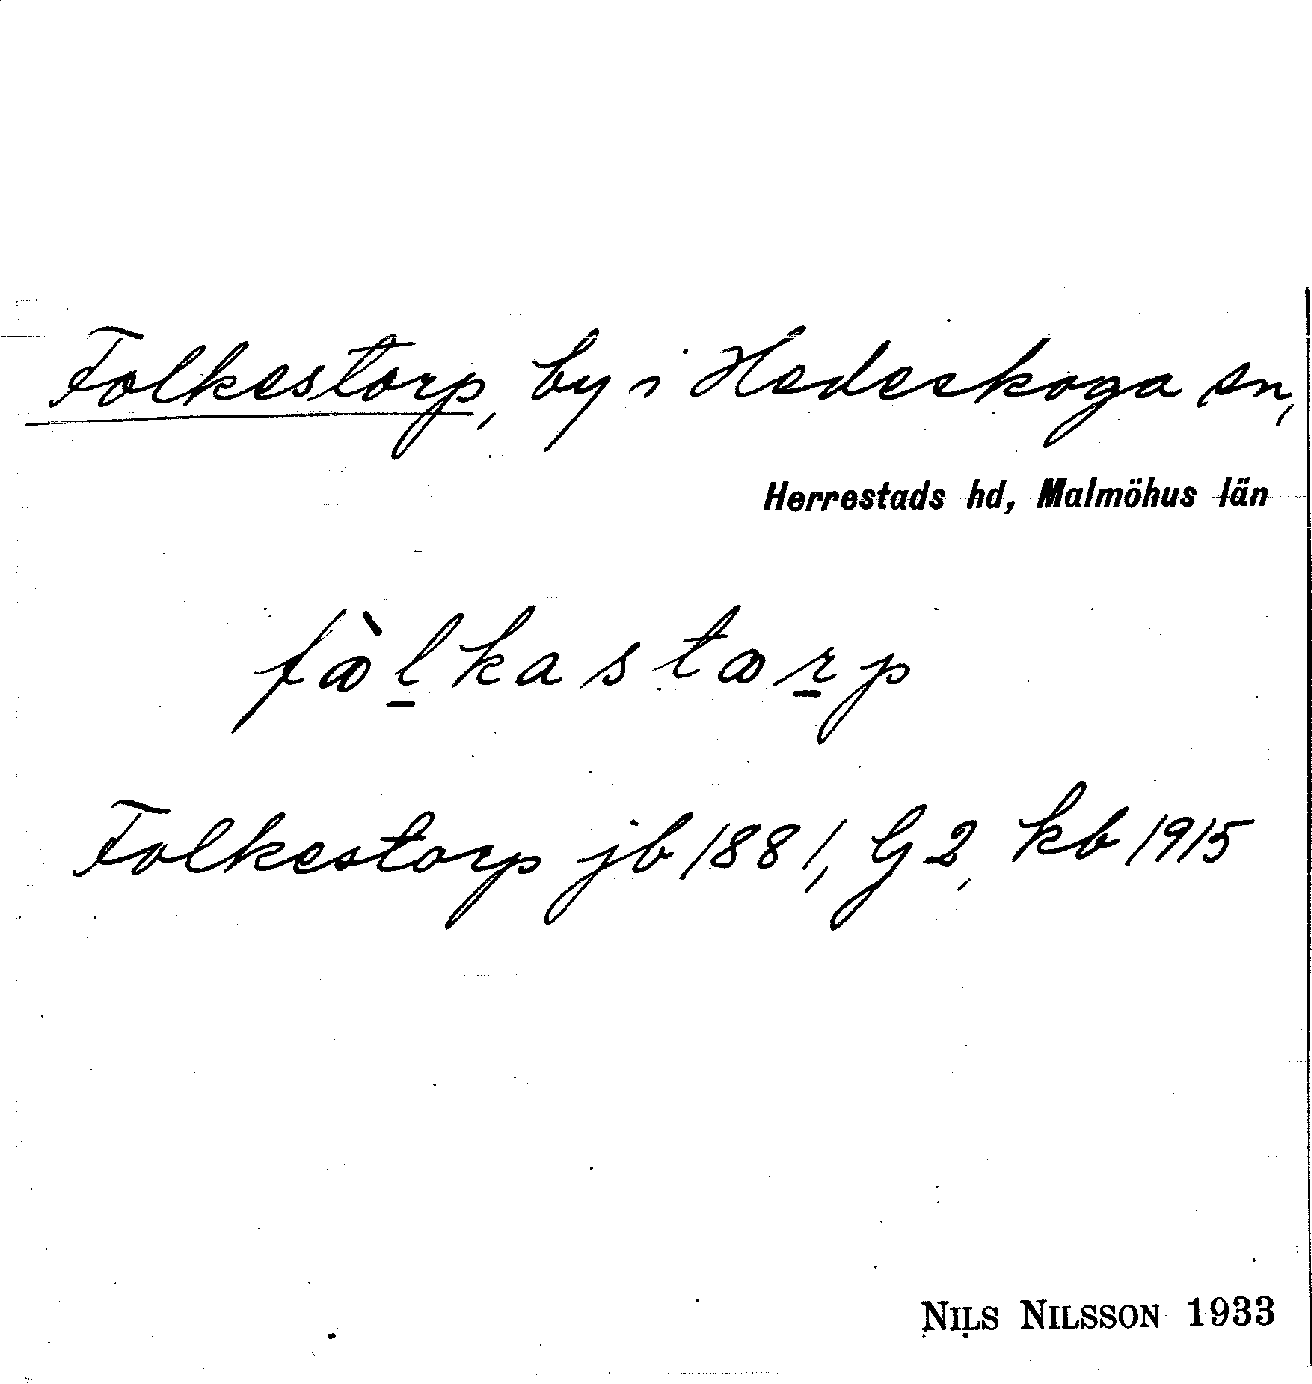 Folkestorp, by i Hedeskoga sn,
Herrestads hd, Malmöhus län
fꝏ̀l̲kastꝏr̲p
Folkestorp jb 1881, G 2, kb 1915
NILS NILSSON 1933